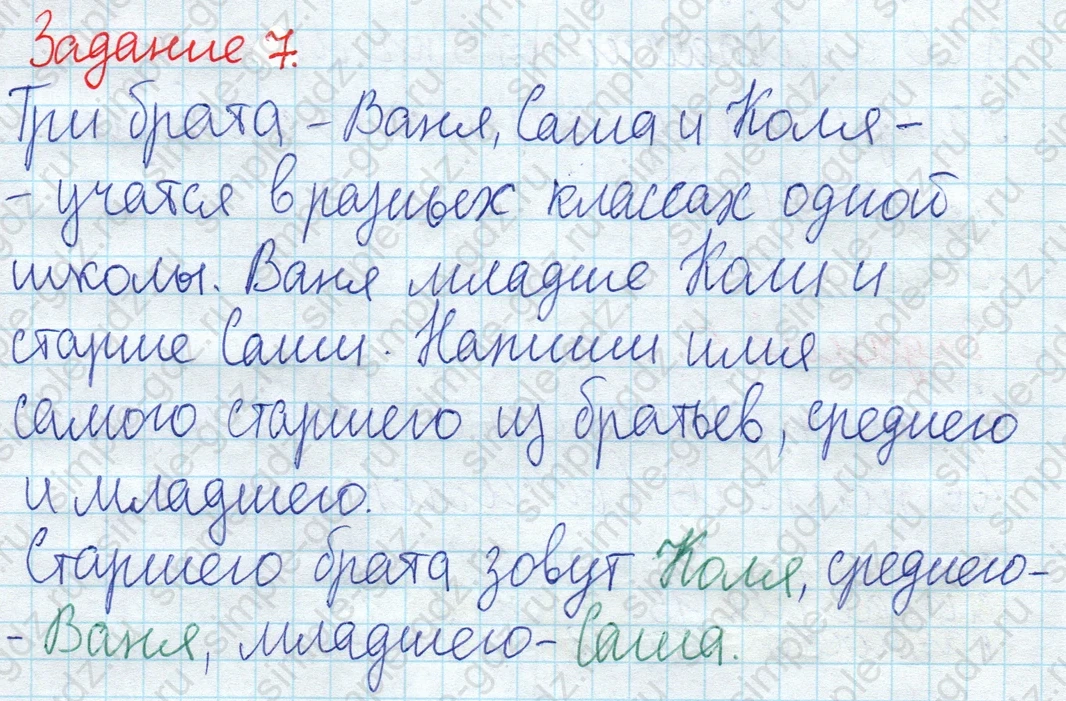 Задание 7.
Три брата - Ваня, Саша и Коля -
- учатся в разных классах одной
школы. Ваня младше Коли и
старше Саши. Напиши имя
самого старшего из братьев, среднего
и младшего.
Старшего брата зовут Коля, среднего -
- Ваня, младшего - Саша.